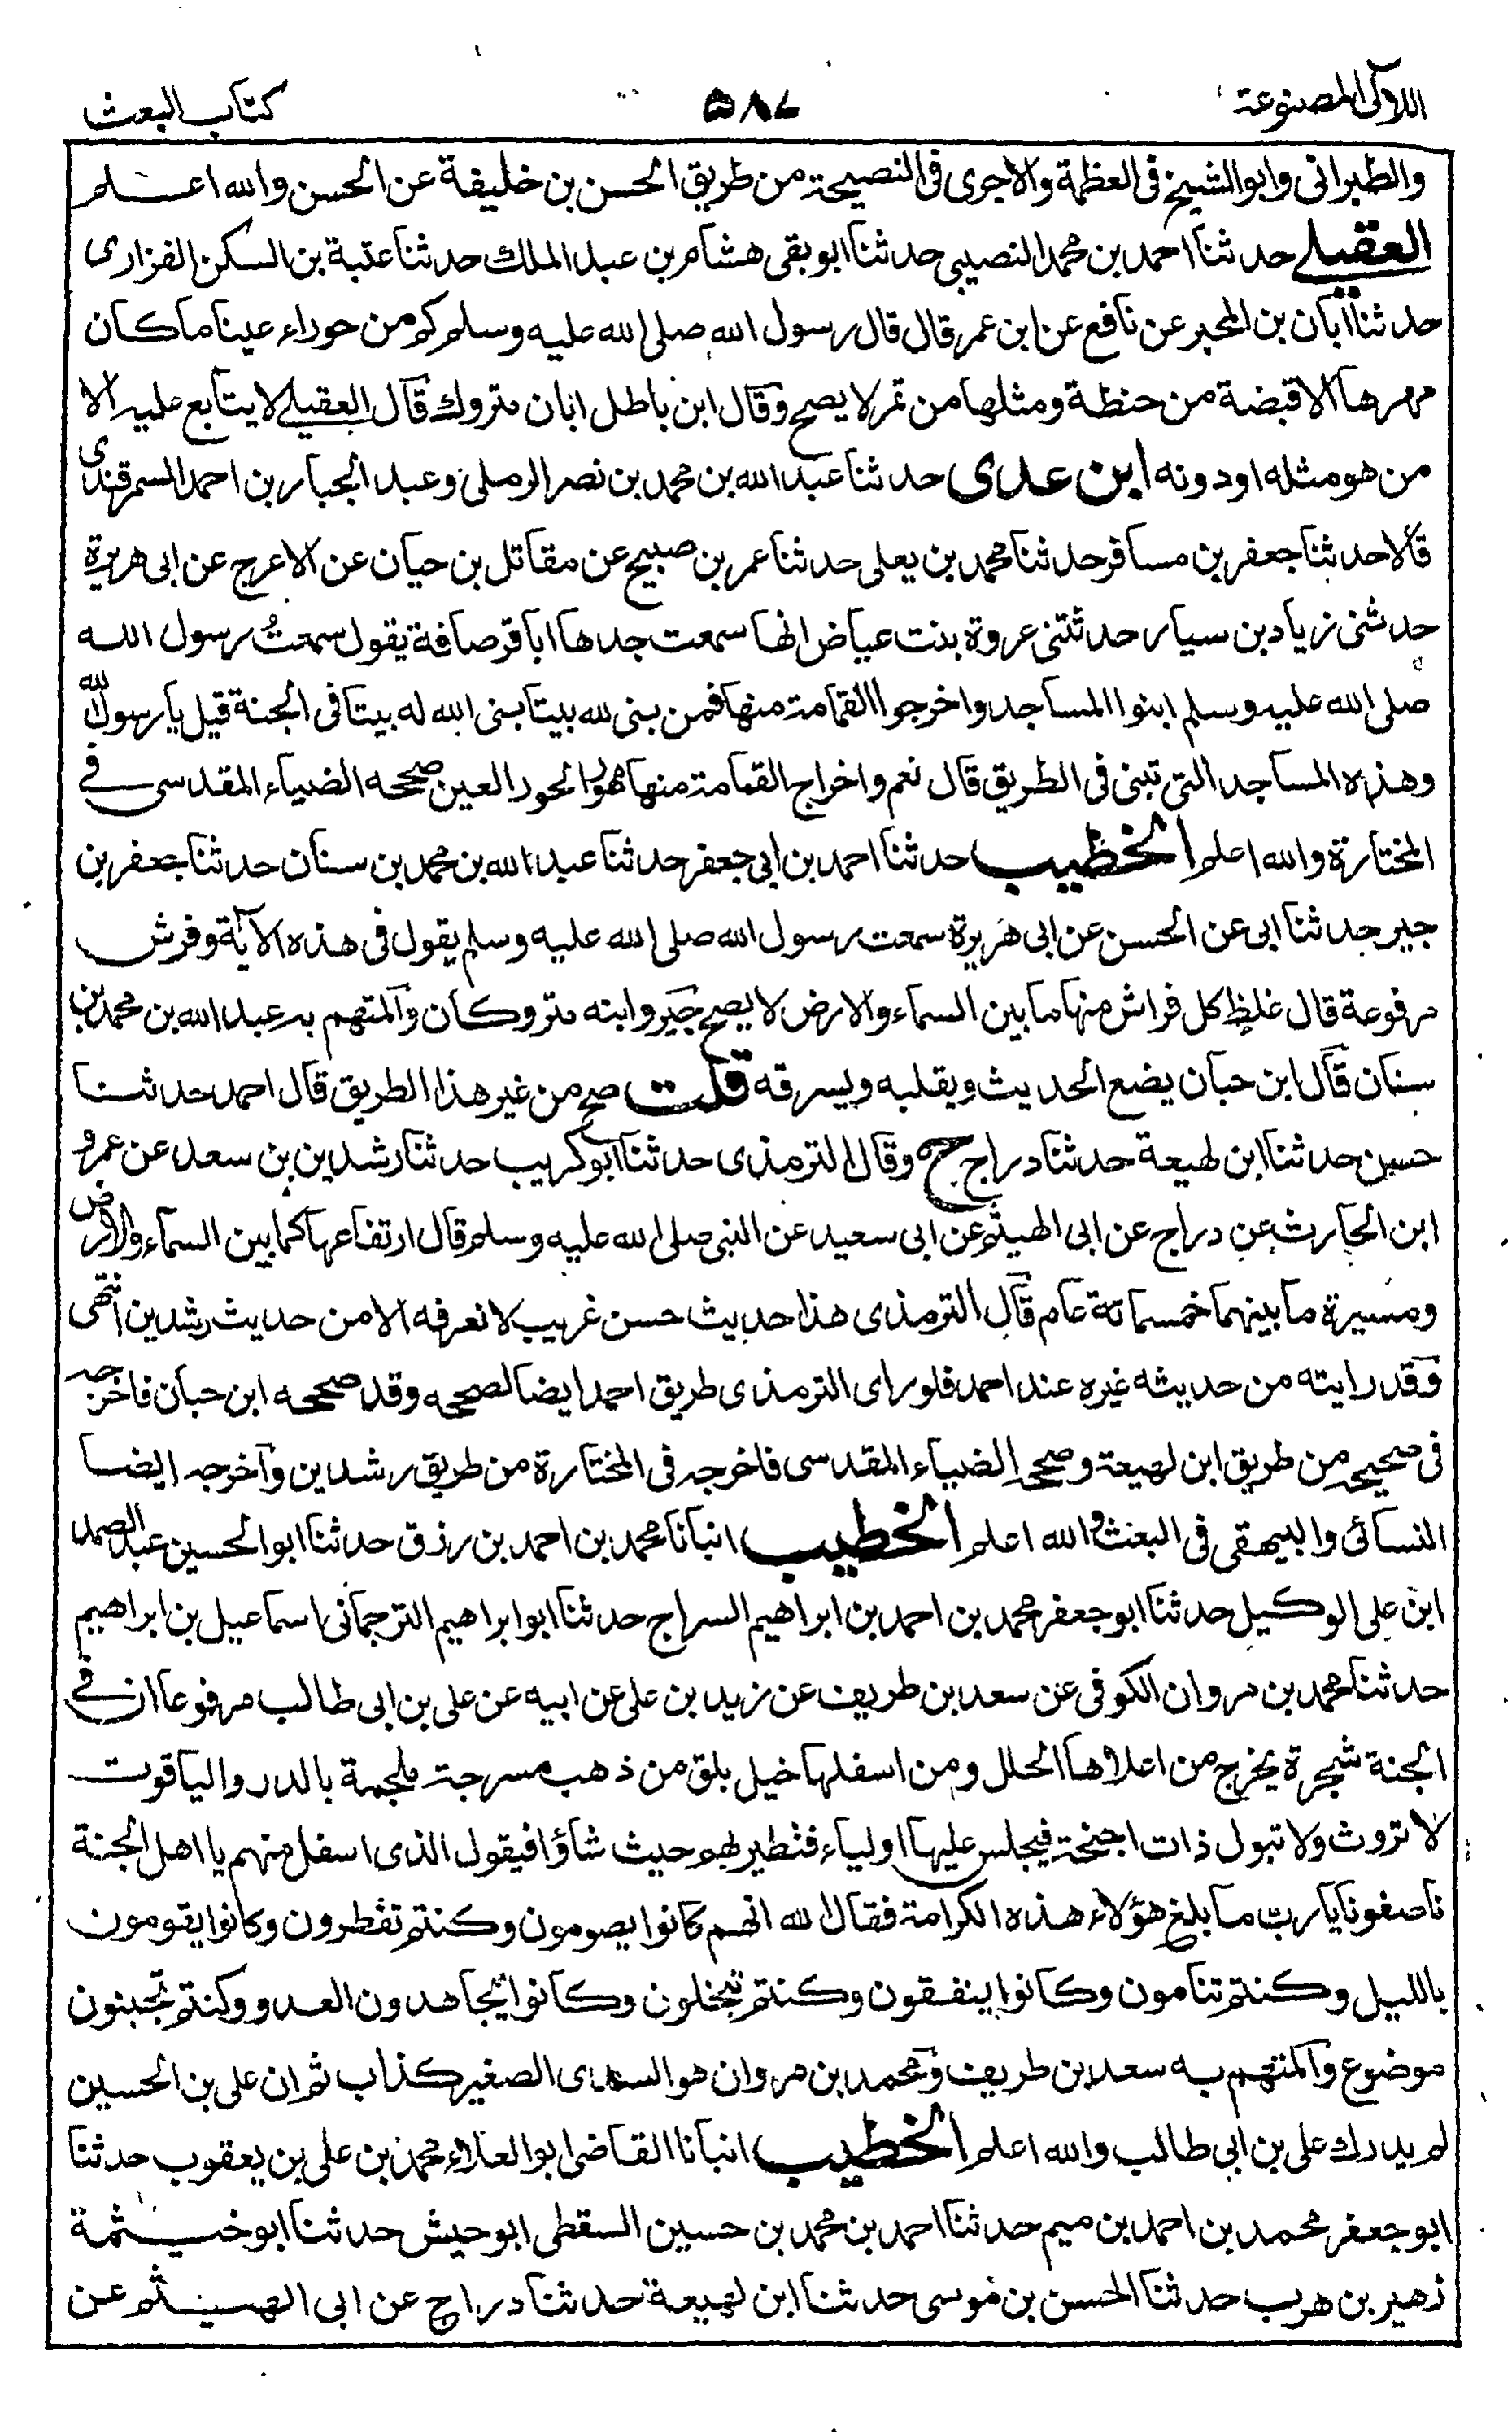 اللآلى المصنوعة ٥٨٧ كتاب البعث
والطبرانى وابو الشيخ فى العظمة والاجرى فى النصيحة من طريق الحسن بن خليفة عن الحسن والله اعلم
العقيلے حدثنا احمد بن محمد النصيبى حدثنا ابو بقى هشام بن عبد الملك حدثنا عتبة بن السكن الفزارى
حدثنا ابان بن المحبر عن نافع عن ابن عمر قال قال رسول الله صلى الله عليه وسلم كم من حوراء عينا ما كان
مهرها الا قبضة من حنطة ومثلها من تمر لا يصح وقال ابن باطل ابان متروك قال العقيلے لا يتابع عليه الا
من هو مثله او دونه ابن عدى حدثنا عبد الله بن محمد بن نصر الرملى وعبد الجبار بن احمد السمرقندى
قالا حدثنا جعفر بن مسافر حدثنا محمد بن يعلى حدثنا عمر بن صبيح عن مقاتل بن حيان عن الاعرج عن ابى هريرة
حدثنى زياد بن سيار حدثتنى عروة بنت عياض انها سمعت جدها ابا قرصافة يقول سمعتُ رسول الله
صلى الله عليه وسلم ابنوا المساجد واخرجوا القمامة منها فمن بنى لله بيتا بنى الله له بيتا فى الجنة قيل يا رسول الله
وهذه المساجد التى تبنى فى الطريق قال نعم واخراج القمامة منها مهور الحور العين صححه الضياء المقدسى فے
المختارة والله اعلم الخطيب حدثنا احمد بن ابى جعفر حدثنا عبد الله بن محمد بن سنان حدثنا جعفر بن
جبر حدثنا ابى عن الحسن عن ابى هريرة سمعت رسول الله صلى الله عليه وسلم يقول فى هذه الآية وفرش
مرفوعة قال غلظ كل فراش منها ما بين السماء والارض لا يصح جبر وابنه متروكان والمتهم به عبد الله بن محمد بن
سنان قال ابن حبان يضع الحديث ويقلبه ويسرقه قلت صح من غير هذا الطريق قال احمد حدثنا
حسن حدثنا ابن لهيعة حدثنا دراج ح وقال الترمذى حدثنا ابو كريب حدثنا رشدين بن سعد عن عمرو
ابن الحارث عن دراج عن ابى الهيثم عن ابى سعيد عن النبى صلى الله عليه وسلم قال ارتفاعها كما بين السماء والارض
ومسيرة ما بينهما خمسمائة عام قال الترمذى هذا حديث حسن غريب لا نعرفه الا من حديث رشدين انتهى
وقد رايته من حديثه غيره عند احمد فلو راى الترمذى طريق احمد ايضا لصححه وقد صححه ابن حبان فاخرجه
فى صحيحه من طريق ابن لهيعة وصححه الضياء المقدسى فاخرجه فى المختارة من طريق رشدين واخرجه ايضا
النسائى والبيهقى فى البعث والله اعلم الخطيب انبانا محمد بن احمد بن رزق حدثنا ابو الحسين عبد الصمد
ابن على الوكيل حدثنا ابو جعفر محمد بن احمد بن ابراهيم السراج حدثنا ابو ابراهيم الترجمانى اسماعيل بن ابراهيم
حدثنا محمد بن مروان الكوفى عن سعد بن طريف عن زيد بن على عن ابيه عن على بن ابى طالب مرفوعا ان فے
الجنة شجرة يخرج من اعلاها الحلل ومن اسفلها خيل بلق من ذهب مسرجة ملجمة بالدر والياقوت
لا تروث ولا تبول ذات اجنحة فيجلس عليها اولياء فتطير بهم حيث شاؤا فيقول الذى اسفل منهم يا اهل الجنة
ناصفونا يا رب ما بلغ هؤلاء هذه الكرامة فقال الله انهم كانوا يصومون وكنتم تفطرون وكانوا يقومون
بالليل وكنتم تنامون وكانوا ينفقون وكنتم تبخلون وكانوا يجاهدون العدو وكنتم تجبنون
موضوع والمتهم به سعد بن طريف ومحمد بن مروان هو السدى الصغير كذاب ثم ان على بن الحسين
لم يدرك على بن ابى طالب والله اعلم الخطيب انبانا القاضى ابو العلاء محمد بن على بن يعقوب حدثنا
ابو جعفر محمد بن احمد بن ميم حدثنا احمد بن محمد بن حسين السقطى ابو حيش حدثنا ابو خيثمة
زهير بن هرب حدثنا الحسن بن موسى حدثنا ابن لهيعة حدثنا دراج عن ابى الهيثم عن